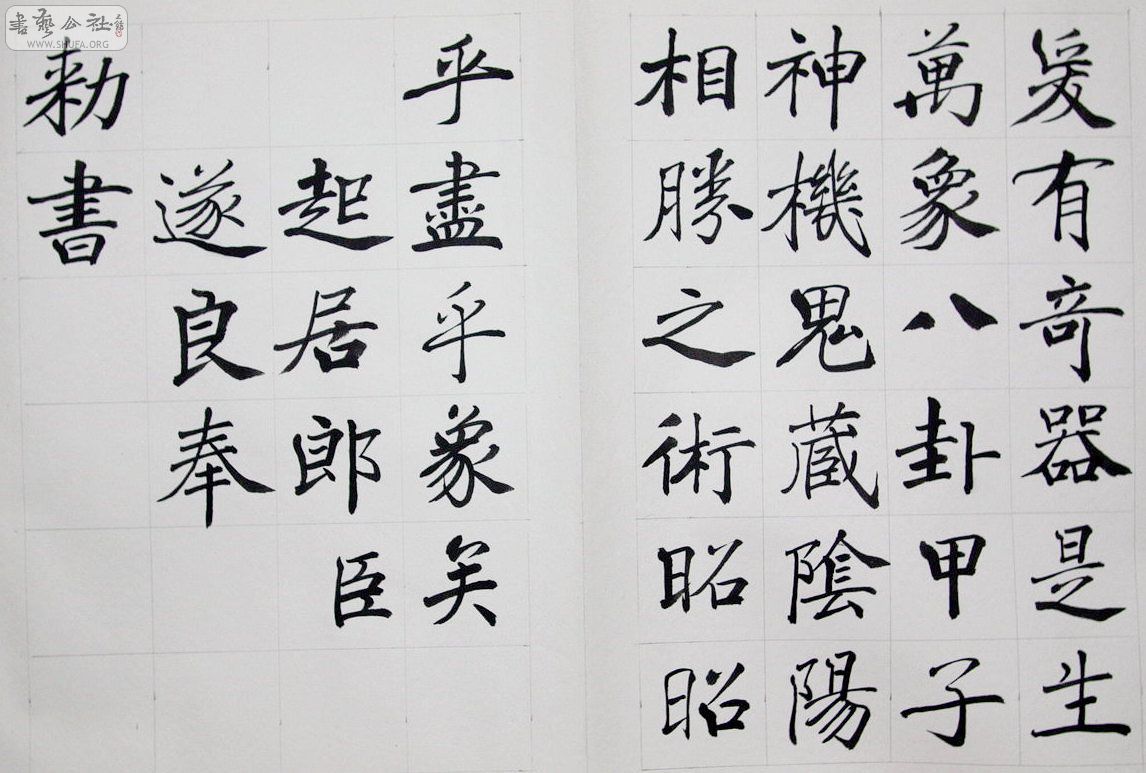 爰有奇器是生
萬象八卦甲子
神機鬼蔵陰陽
相勝之術昭昭
乎盡乎象矣
起居郎臣
遂良奉
勑書
書藝公社
WWW.SHUFA.ORG